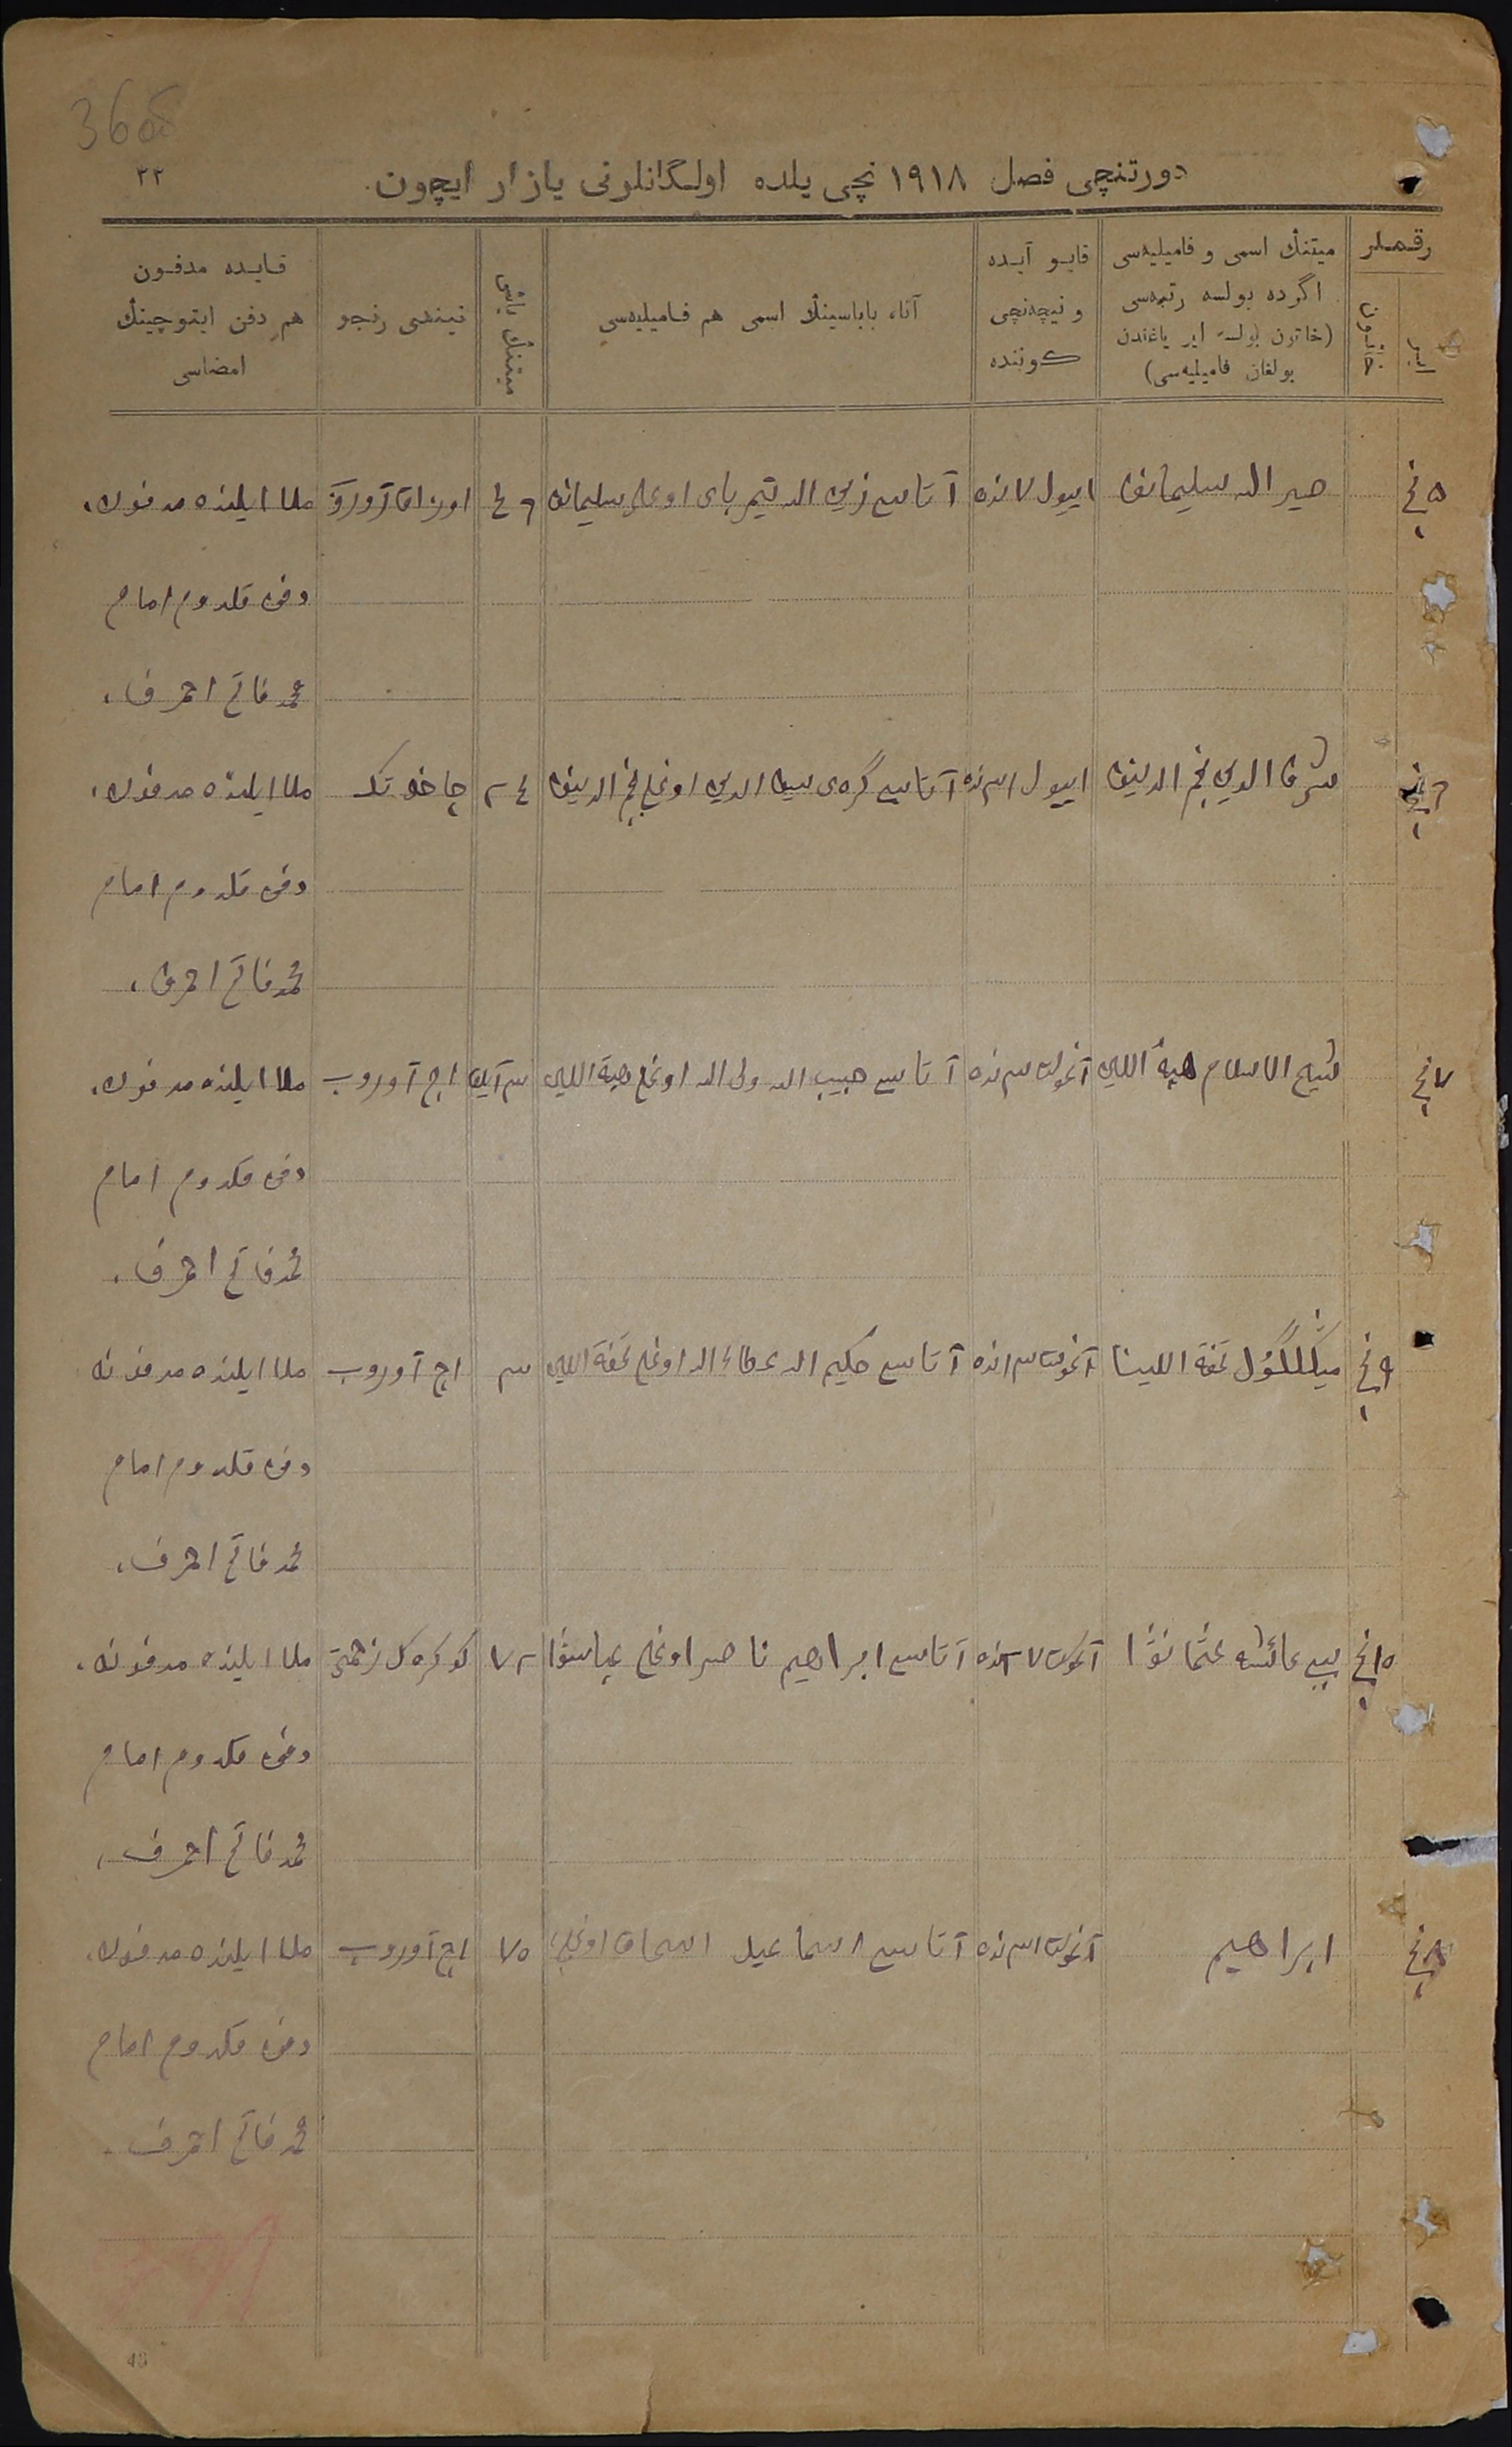 36 об
٣٣
دورتنچی فصل ١٩١٨ نچی یلده اولگانلرنی یازار ایچون.
رقملر
ایر
خاتون
میتنڭ اسمی و فامیلیه‌سی اگرده بولسه رتبه‌سی (خاتون بولسه ایر یاغندن بولغان فامیلیه‌سی)
قایو آیده و نیچه‌نچی کوننده
آتا، باباسینڭ اسمی هم فامیلیه‌سی
میتنڭ یاشی
نیندی رنجو
قایده مدفون هم دفن ایتوچینڭ امضاسی
٥ نچی سلیمانف اییول ٧ نده آتاسی تیمر بای اوغلی سلیمانف ملا ایلنده مدفون.
دفن قلدوم امام
محمد فاتح احمرف.
٦ نچی شرف الدین نجم الدینف اییول آتاسی گره‌ی سیف الدین اوغلی نجم الدینف ٢٤ چاخوتک ملا ایلنده مدفون.
دفن قلدوم امام
محمد فاتح احمرف.
٧ نچی شیخ الاسلام هبة اللین آغوست ٣ نده آتاسی حبیب الله ولی الله اوغلی هبة اللین ٣ آیلق اچ آوروب ملا ایلنده مدفون.
دفن قلدوم امام
محمد فاتح احمرف.
٩ نچی تحفة اللینا آغوست آتاسی حکیم الله عطاء الله اوغلی تحفة اللین ٣ اچ آوروب ملا ایلنده مدفونه
دفن قلدوم امام
محمد فاتح احمرف.
١٠ نچی بیبی عائشه عثمانوا آغوست ٢٧ نده آتاسی ابراهیم ناصر اوغلی عباسوا ٧٢ کوکره‌ک زحمتی ملا ایلنده مدفونه.
دفن قلدوم امام
محمد فاتح احمرف.
٨ نچی ابراهیم آغوست آتاسی اسماعیل اسحاق اوغلی ٧٥ اچ آوروب ملا ایلنده مدفون.
دفن قلدوم امام
محمد فاتح احمرف.